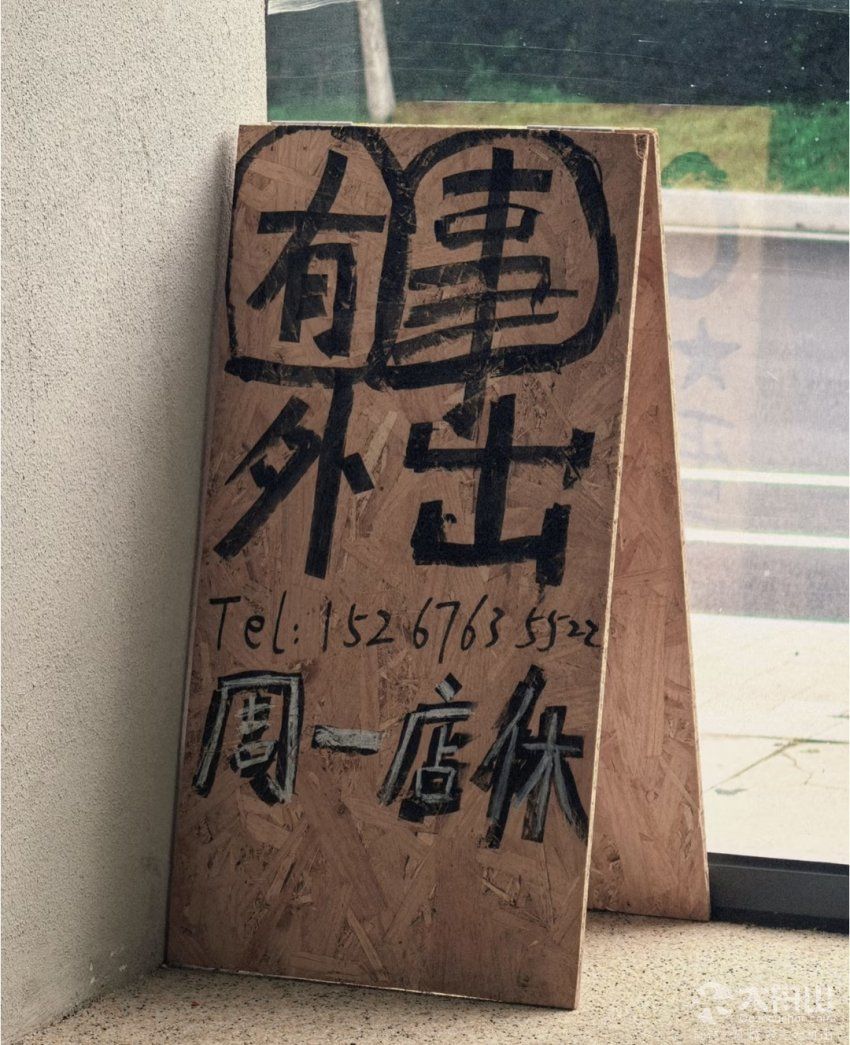 有事
外出
Tel: 152 6763 5522
周一店休